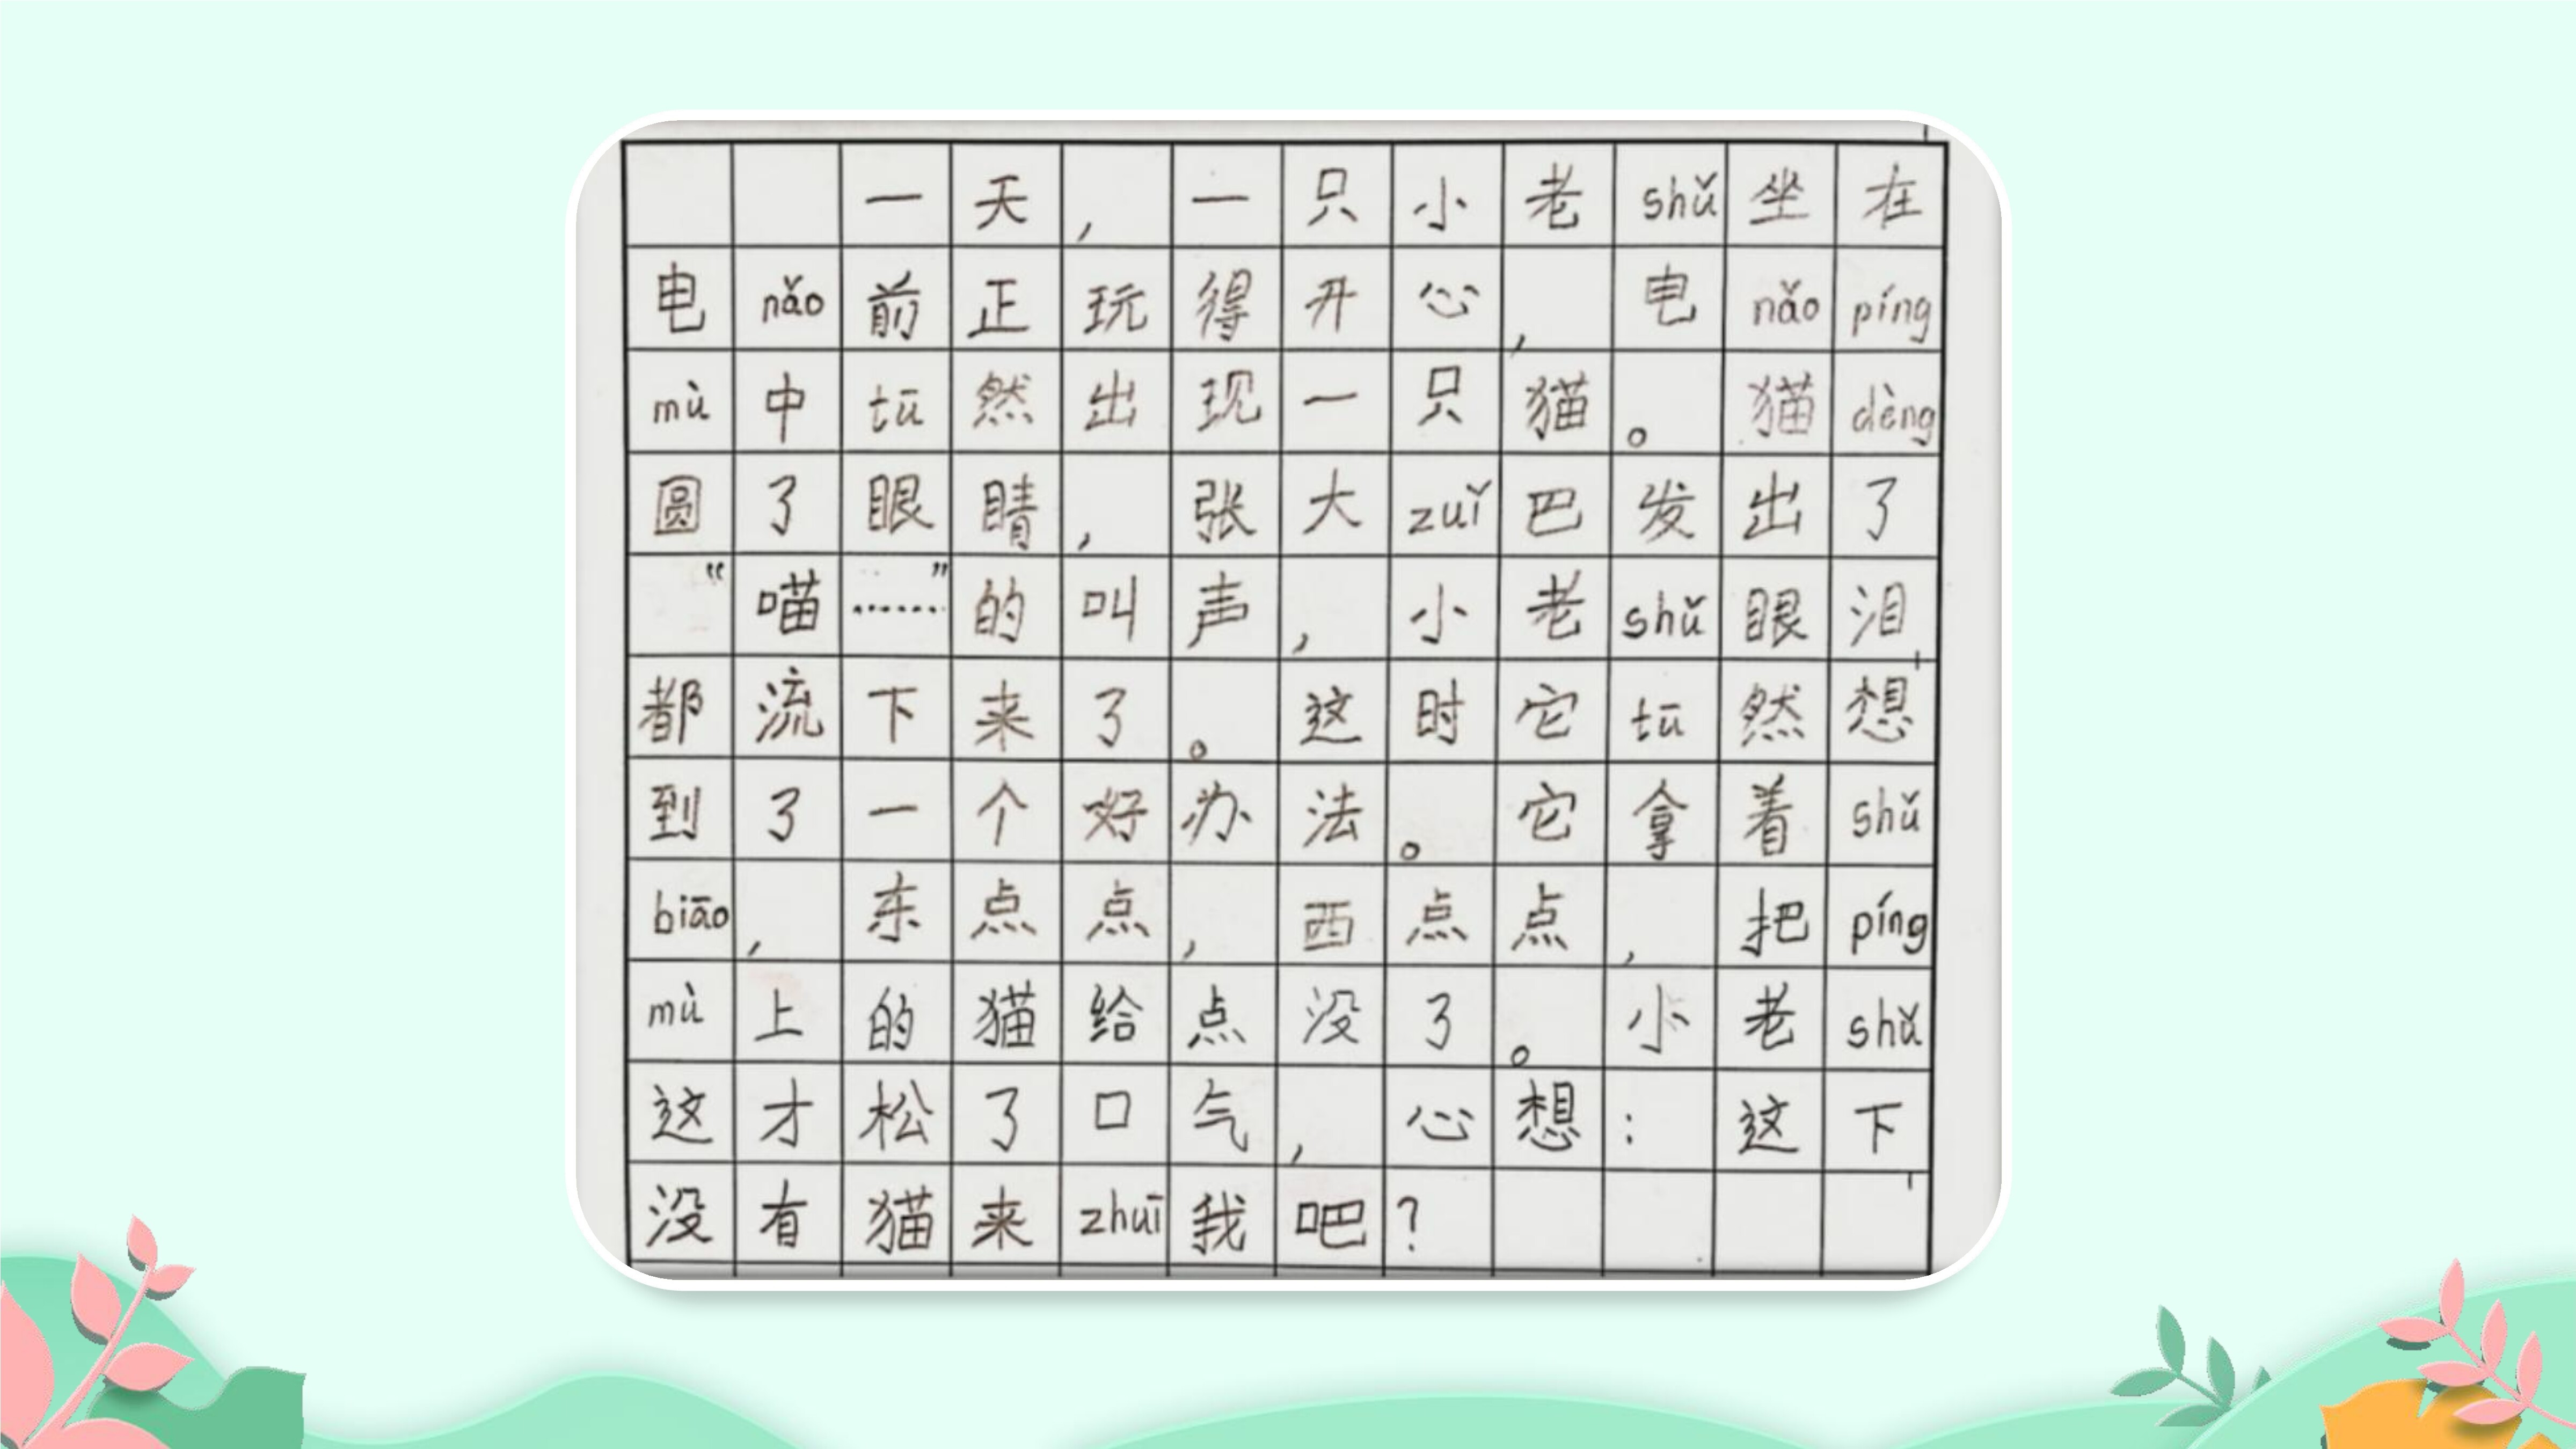 一天，一只小老shǔ坐在
电nǎo前正玩得开心，电nǎo píng
mù中tū然出现一只猫。猫dèng
圆了眼睛，张大zuǐ巴发出了
“喵……”的叫声，小老shǔ眼泪
都流下来了。这时它tū然想
到了一个好办法。它拿着shǔ
biāo，东点点，西点点，把píng
mù上的猫给点没了。小老shǔ
这才松了口气，心想：这下
没有猫来zhuī我吧？